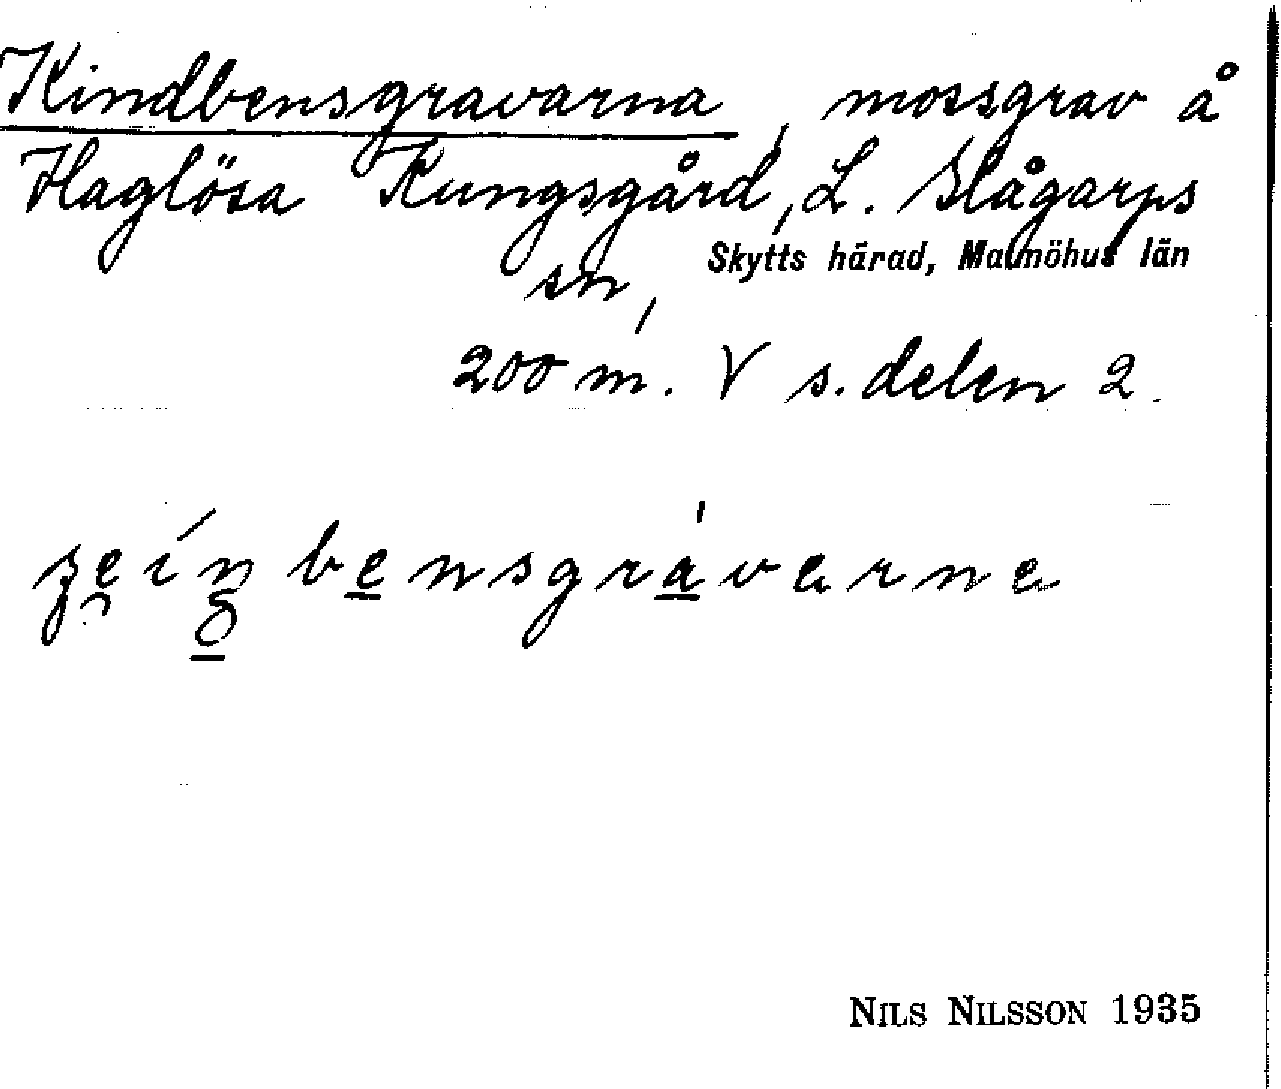 Kindbensgravarna, mossgrav å
Haglösa Kungsgård, L. Slågarps
sn,
Skytts härad, Malmöhus län
200 m. V s. delen 2.
NILS NILSSON 1935